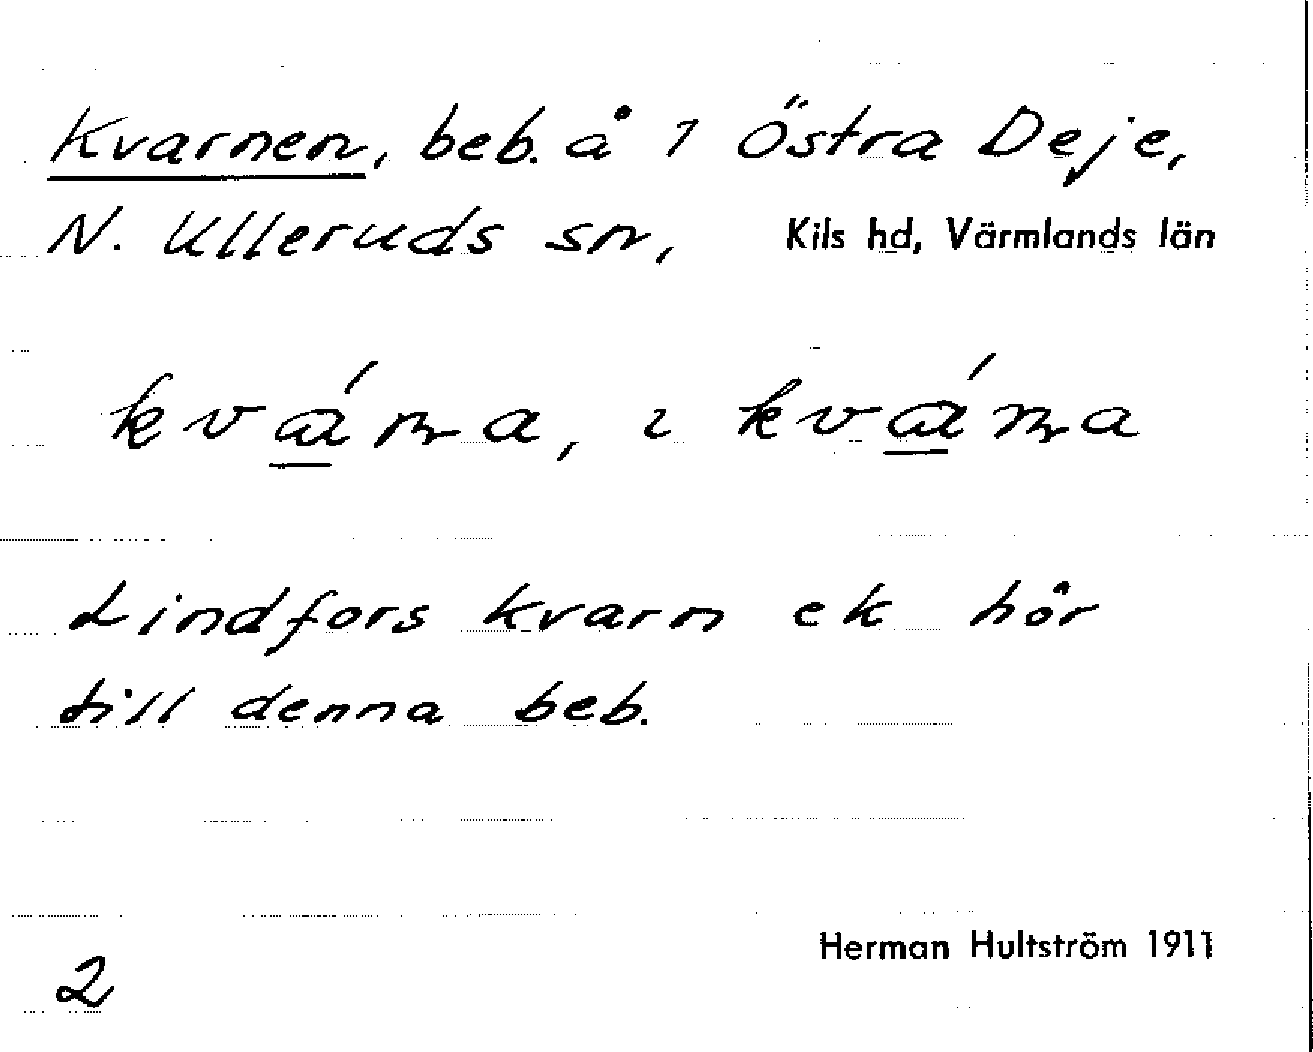 Kvarnen, beb. å 1 Östra Deje,
N. Ulleruds sn, Kils hd, Värmlands län
kvána, i kvána
Lindfors kvarn ek hör
till denna beb.
Herman Hultström 1911
2